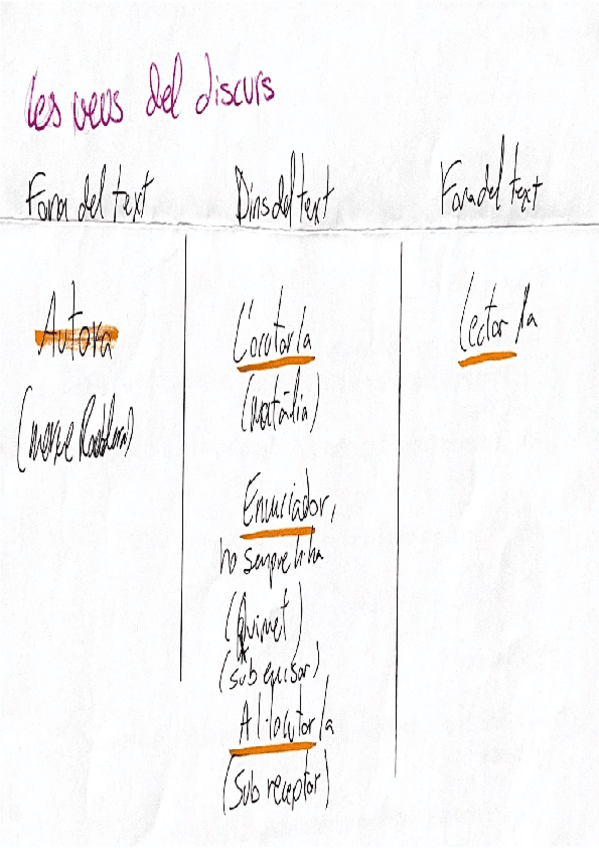 Les veus del discurs
Fora del text
Dins del text
Fora del text
Autora
(Mercè Rodoreda)
Locutor/a
(Natàlia)
Enunciador,
no sempre hi ha
(Quimet)
(sub emisor)
Al·locutor/a
(Sub receptor)
Lector/a